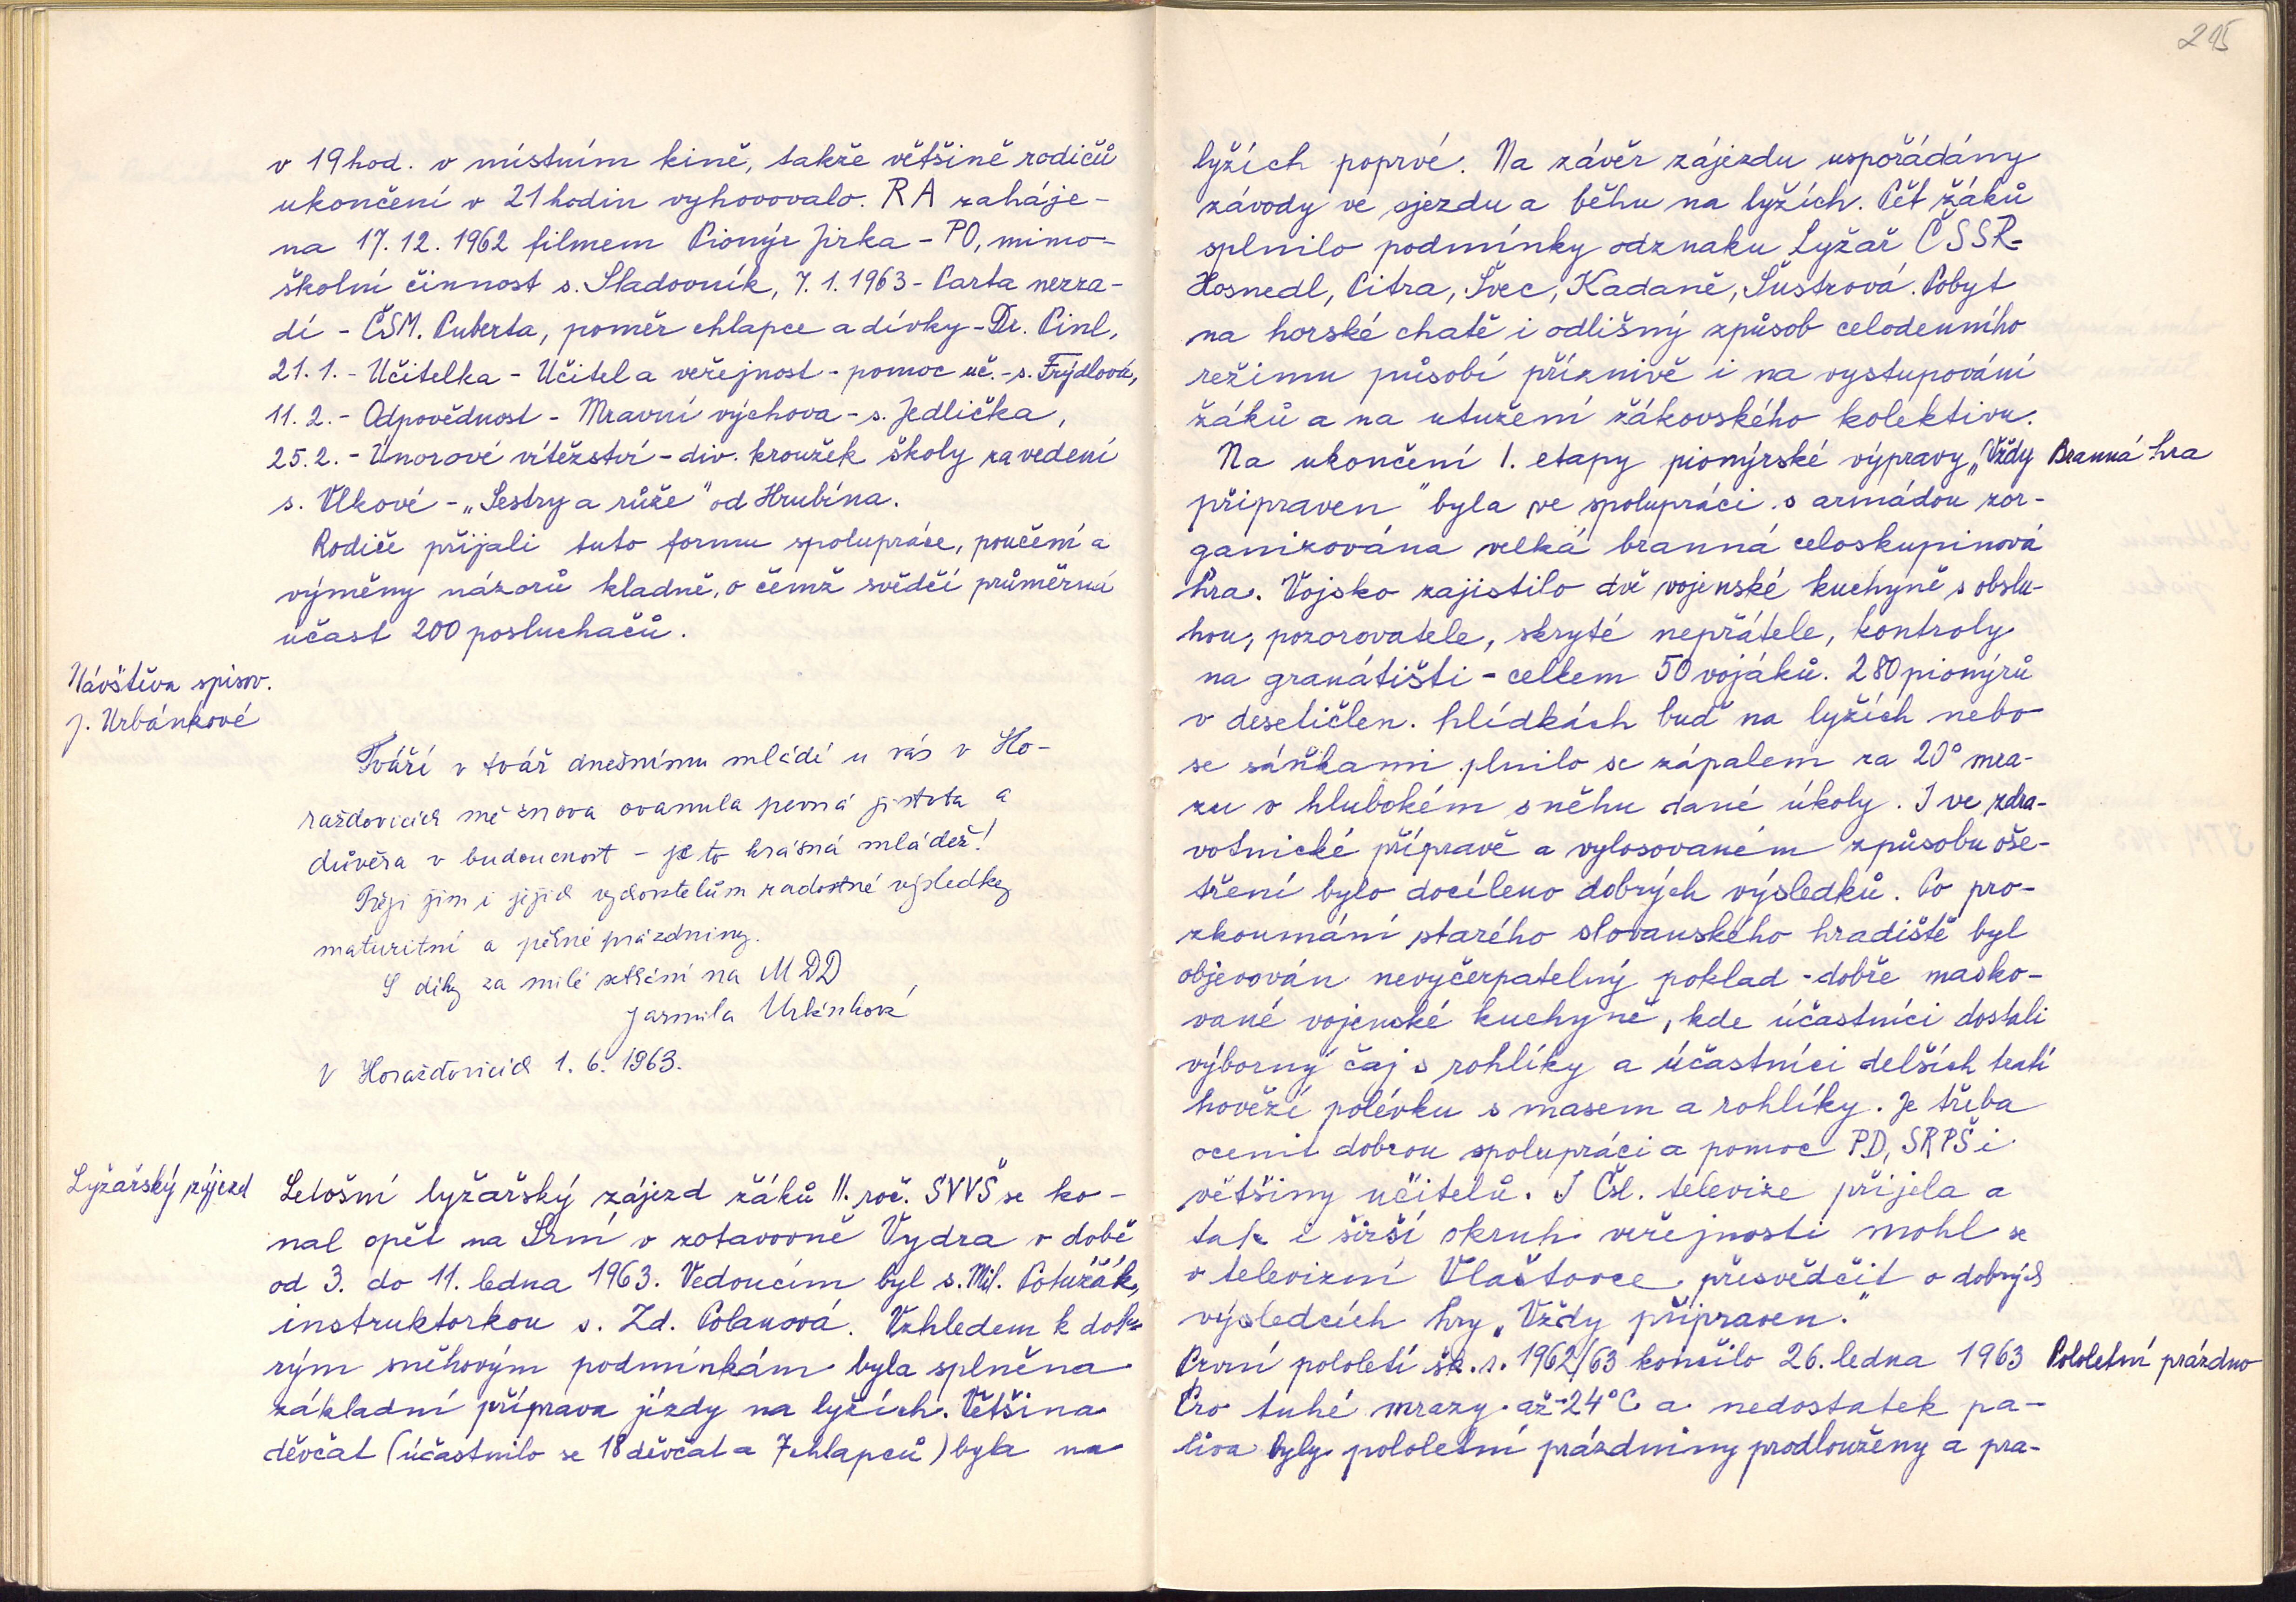 v 19 hod. v místním kině, takže většině rodičů
ukončení v 21 hodin vyhovovalo. RA zaháje-
na 17.12.1962 filmem Pionýr Jirka - PO, mimo-
školní činnost s. Sladovník, 7.1.1963 - Parta nezra-
dí - ČSM. Puberta, poměr chlapce a dívky - Dr. Pinl,
21.1. - Učitelka - Učitel a veřejnost - pomoc uč. - s. Frýdlová,
11.2. - Odpovědnost - Mravní výchova - s. Jedlička,
25.2. - Únorové vítězství - div. kroužek školy za vedení
s. Vlkové - „Sestry a růže" od Hrubína.
Rodiče přijali tuto formu spolupráce, poučení a
výměny názorů kladně, o čemž svědčí průměrná
účast 200 posluchačů.
Návštěva spisov.
J. Urbánkové
Tváří v tvář dnešnímu mládí u vás v Ho-
ražďovicích mě znova ovanula pevná jistota a
důvěra v budoucnost - je to krásná mládež!
Přeji jim i jejich vychovatelům radostné výsledky
maturitní a pěkné prázdniny.
S díky za milé setkání na MDD
Jarmila Urbánková
V Horažďovicích 1.6.1963.
Lyžařský zájezd
Letošní lyžařský zájezd žáků II. roč. SVVŠ se ko-
nal opět na Srní v zotavovně Vydra v době
od 3. do 11. ledna 1963. Vedoucím byl s. Mil. Potužák,
instruktorkou s. Zd. Polanová. Vzhledem k dob-
rým sněhovým podmínkám byla splněna
základní příprava jízdy na lyžích. Většina
děvčat (účastnilo se 18 děvčat a 7 chlapců) byla na
215
lyžích poprvé. Na závěr zájezdu uspořádány
závody ve sjezdu a běhu na lyžích. Pět žáků
splnilo podmínky odznaku Lyžař ČSSR-
Hosnedl, Pitra, Švec, Kadaně, Šustrová. Pobyt
na horské chatě i odlišný způsob celodenního
režimu působí příznivě i na vystupování
žáků a na utužení žákovského kolektivu.
Na ukončení I. etapy pionýrské výpravy „Vždy
Branná hra
připraven" byla ve spolupráci s armádou zor-
ganizována velká branná celoskupinová
hra. Vojsko zajistilo dvě vojenské kuchyně s obslu-
hou, pozorovatele, skryté nepřátele, kontroly
na granátišti - celkem 50 vojáků. 280 pionýrů
v desetičlen. hlídkách buď na lyžích nebo
se sáňkami plnilo se zápalem za 20° mra-
zu v hlubokém sněhu dané úkoly. I ve zdra-
votnické přípravě a vylosovaném způsobu oše-
tření bylo docíleno dobrých výsledků. Po pro-
zkoumání starého slovanského hradiště byl
objevován nevyčerpatelný poklad - dobře masko-
vané vojenské kuchyně, kde účastníci dostali
výborný čaj s rohlíky a účastníci delších tratí
hovězí polévku s masem a rohlíky. Je třeba
ocenit dobrou spolupráci a pomoc PD, SRPŠ i
většiny učitelů. I Čsl. televize přijela a
tak i širší okruh veřejnosti mohl se
v televizní Vlaštovce přesvědčit o dobrých
výsledcích hry „Vždy připraven."
První pololetí šk. r. 1962/63 končilo 26. ledna 1963
Pololetní prázdno
Pro tuhé mrazy až -24°C a nedostatek pa-
liva byly pololetní prázdniny prodlouženy a pra-